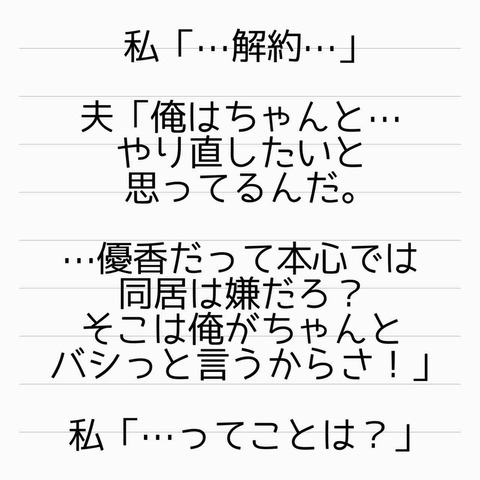 私「…解約…」
夫「俺はちゃんと…
やり直したいと
思ってるんだ。
…優香だって本心では
同居は嫌だろ？
そこは俺がちゃんと
バシっと言うからさ！」
私「…ってことは？」